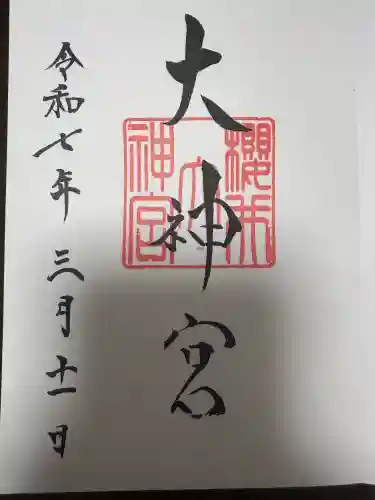 大神宮
櫻木
大
神宮
令和七年三月十一日